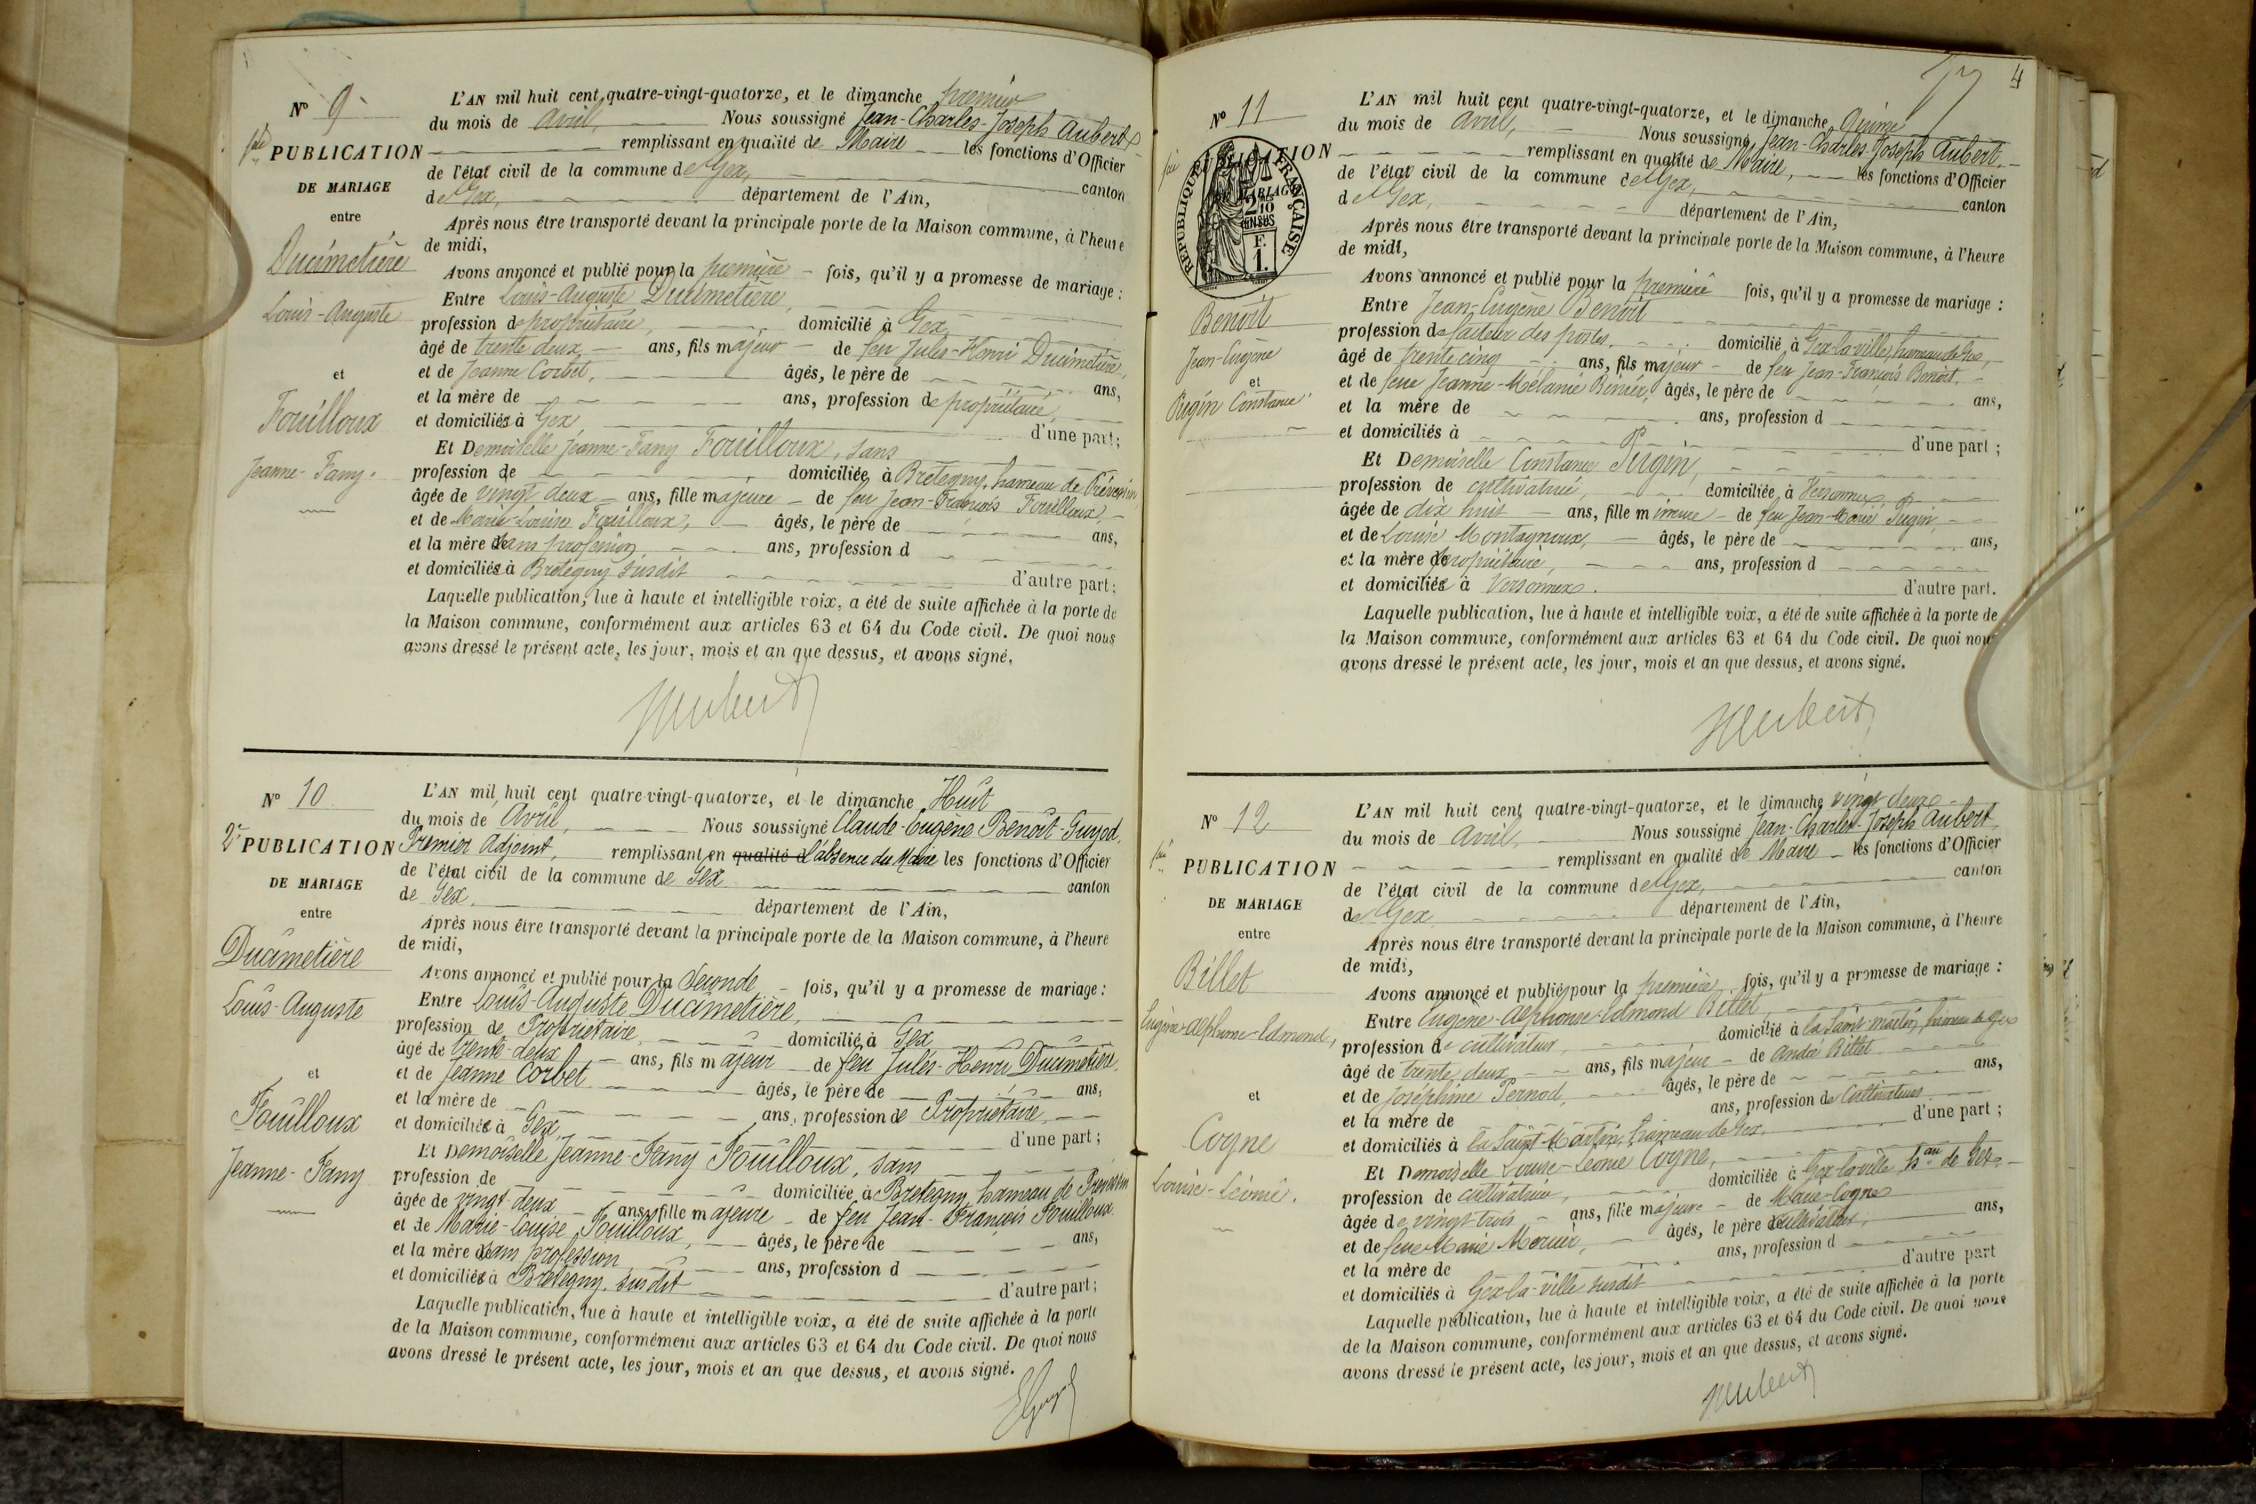 N° 9
1ère PUBLICATION
DE MARIAGE
entre
Ducimetière
Louis-Auguste
et
Fouilloux
Jeanne-Fany.
L'AN mil huit cent quatre-vingt-quatorze, et le dimanche premier
du mois de avril, Nous soussigné Jean-Charles-Joseph Aubert
remplissant en qualité de Maire les fonctions d'Officier
de l'état civil de la commune de Gex, canton
de Gex, département de l'Ain,
Après nous être transporté devant la principale porte de la Maison commune, à l'heure
de midi,
Avons annoncé et publié pour la première fois, qu'il y a promesse de mariage :
Entre Louis-Auguste Ducimetière,
profession de propriétaire, domicilié à Gex,
âgé de trente deux ans, fils majeur de feu Jules-Henri Ducimetière,
et de Jeanne Corbet, âgés, le père de ans,
et la mère de ans, profession de propriétaire,
et domiciliés à Gex, d'une part;
Et Demoiselle Jeanne-Fany Fouilloux, sans
profession de domiciliée à Bretegny, hameau de Prévessin,
âgée de vingt deux ans, fille majeure de feu Jean-François Fouilloux,
et de Marie-Louise Fouilloux, âgés, le père de ans,
et la mère sans profession, ans, profession d
et domiciliés à Bretegny susdit d'autre part;
Laquelle publication, lue à haute et intelligible voix, a été de suite affichée à la porte de
la Maison commune, conformément aux articles 63 et 64 du Code civil. De quoi nous
avons dressé le présent acte, les jour, mois et an que dessus, et avons signé.
Aubert
N° 10
2e PUBLICATION
DE MARIAGE
entre
Ducimetière
Louis-Auguste
et
Fouilloux
Jeanne-Fany
L'AN mil huit cent quatre-vingt-quatorze, et le dimanche Huit
du mois de Avril, Nous soussigné Claude-Eugène Benoît-Guyod,
Premier Adjoint, remplissant en qualité d l'absence du Maire les fonctions d'Officier
de l'état civil de la commune de Gex canton
de Gex, département de l'Ain,
Après nous être transporté devant la principale porte de la Maison commune, à l'heure
de midi,
Avons annoncé et publié pour la Seconde fois, qu'il y a promesse de mariage :
Entre Louis-Auguste Ducimetière,
profession de Propriétaire, domicilié à Gex
âgé de trente-deux ans, fils majeur de feu Jules-Henri Ducimetière
et de Jeanne Corbet âgés, le père de ans,
et la mère de ans, profession de Propriétaire,
et domiciliés à Gex, d'une part;
Et Demoiselle Jeanne-Fany Fouilloux, sans
profession de domiciliée à Bretegny, hameau de Prévessin
âgée de vingt-deux ans, fille majeure de feu Jean-François Fouilloux
et de Marie-Louise Fouilloux, âgés, le père de ans,
et la mère sans profession, ans, profession d
et domiciliés à Bretegny, susdit d'autre part;
Laquelle publication, lue à haute et intelligible voix, a été de suite affichée à la porte
de la Maison commune, conformément aux articles 63 et 64 du Code civil. De quoi nous
avons dressé le présent acte, les jour, mois et an que dessus, et avons signé.
4
N° 11
1ère PUBLICATION
DE MARIAGE
RÉPUBLIQUE FRANÇAISE
2/10
EN SUS
F.
1.
Benoît
Jean-Eugène
et
Pugin Constance
L'AN mil huit cent quatre-vingt-quatorze, et le dimanche
du mois de avril, Nous soussigné, Jean-Charles-Joseph Aubert,
remplissant en qualité de Maire, les fonctions d'Officier
de l'état civil de la commune de Gex, canton
de Gex, département de l'Ain,
Après nous être transporté devant la principale porte de la Maison commune, à l'heure
de midi,
Avons annoncé et publié pour la première fois, qu'il y a promesse de mariage :
Entre Jean-Eugène Benoît
profession de facteur des postes, domicilié à Gex-la-ville, hameau de Gex,
âgé de trente cinq ans, fils majeur de feu Jean-François Benoît,
et de feue Jeanne-Mélanie âgés, le père de ans,
et la mère de ans, profession d
et domiciliés à d'une part;
Et Demoiselle Constance Pugin,
profession de cultivatrice, domiciliée à Versonnex,
âgée de dix huit ans, fille mineure de feu Jean-Marie Pugin
et de Louise Montagnoux, âgés, le père de ans,
et la mère propriétaire, ans, profession d
et domiciliés à Versonnex. d'autre part.
Laquelle publication, lue à haute et intelligible voix, a été de suite affichée à la porte de
la Maison commune, conformément aux articles 63 et 64 du Code civil. De quoi nous
avons dressé le présent acte, les jour, mois et an que dessus, et avons signé.
Aubert
N° 12
1ère PUBLICATION
DE MARIAGE
entre
Billet
Eugène-Alphonse-Edmond,
et
Cogne
Louise-Léonie.
L'AN mil huit cent quatre-vingt-quatorze, et le dimanche vingt deux
du mois de avril, Nous soussigné Jean-Charles-Joseph Aubert,
remplissant en qualité de Maire les fonctions d'Officier
de l'état civil de la commune de Gex, canton
de Gex département de l'Ain,
Après nous être transporté devant la principale porte de la Maison commune, à l'heure
de midi,
Avons annoncé et publié pour la première fois, qu'il y a promesse de mariage :
Entre Eugène-Alphonse-Edmond Billet,
profession de cultivateur, domicilié à la Saint-Martin, hameau de Gex
âgé de trente deux ans, fils majeur de André Billet
et de Joséphine Pernod, âgés, le père de ans,
et la mère de ans, profession de Cultivateurs
et domiciliés à la Saint-Martin, hameau de Gex, d'une part;
Et Demoiselle Louise-Léonie Cogne,
profession de cultivatrice, domiciliée à Gex-la-ville hau de Gex,
âgée de vingt-trois ans, fille majeure de Marie-Cogne
et de feue Marie Mercier, âgés, le père cultivateur, ans,
et la mère de ans, profession d
et domiciliés à Gex-la-ville susdit d'autre part
Laquelle publication, lue à haute et intelligible voix, a été de suite affichée à la porte
de la Maison commune, conformément aux articles 63 et 64 du Code civil. De quoi nous
avons dressé le présent acte, les jour, mois et an que dessus, et avons signé.
Aubert